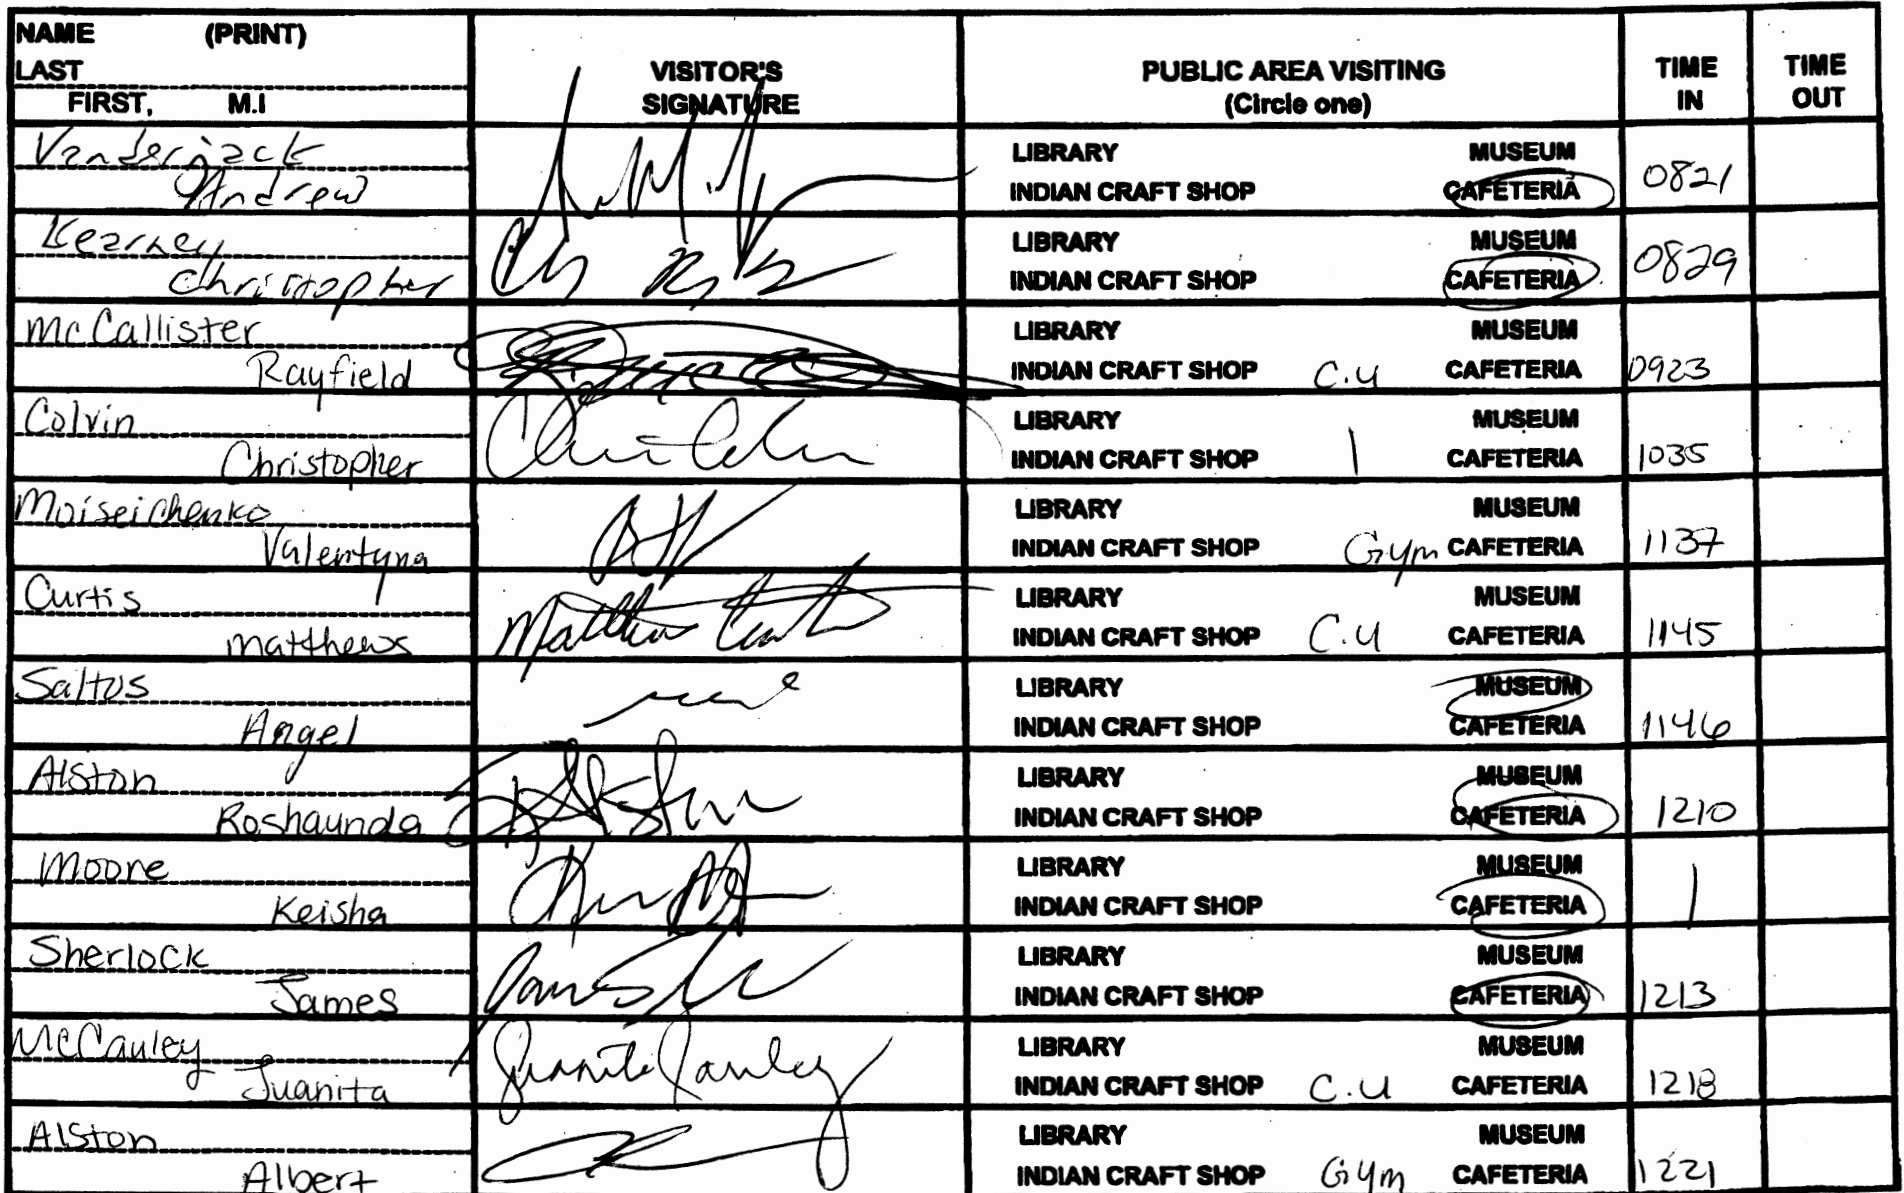 NAME (PRINT)
LAST
FIRST, M.I
VISITOR'S
SIGNATURE
PUBLIC AREA VISITING
(Circle one)
TIME
IN
TIME
OUT
Vanderjack
Andrew
LIBRARY MUSEUM
INDIAN CRAFT SHOP CAFETERIA
0821
Kearney
Christopher
LIBRARY MUSEUM
INDIAN CRAFT SHOP CAFETERIA
0829
McCallister
Rayfield
LIBRARY MUSEUM
INDIAN CRAFT SHOP C.U CAFETERIA
0923
Colvin
Christopher
LIBRARY MUSEUM
INDIAN CRAFT SHOP | CAFETERIA
1035
Moiseichenko
Valentyna
LIBRARY MUSEUM
INDIAN CRAFT SHOP Gym CAFETERIA
1137
Curtis
Matthews
Matthew Curtis
LIBRARY MUSEUM
INDIAN CRAFT SHOP C.U CAFETERIA
1145
Saltos
Angel
LIBRARY MUSEUM
INDIAN CRAFT SHOP CAFETERIA
1146
Alston
Roshaunda
LIBRARY MUSEUM
INDIAN CRAFT SHOP CAFETERIA
1210
Moore
Keisha
LIBRARY MUSEUM
INDIAN CRAFT SHOP CAFETERIA
|
Sherlock
James
LIBRARY MUSEUM
INDIAN CRAFT SHOP CAFETERIA
1213
McCauley
Juanita
LIBRARY MUSEUM
INDIAN CRAFT SHOP C.U CAFETERIA
1218
Alston
Albert
LIBRARY MUSEUM
INDIAN CRAFT SHOP Gym CAFETERIA
1221